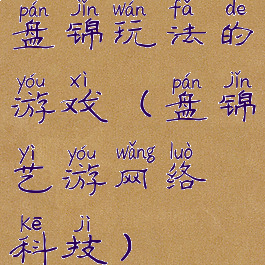 pán jǐn wán fǎ de
盘锦玩法的
yóu xì pán jǐn
游戏(盘锦
yì yóu wǎng luò
艺游网络
kē jì
科技)